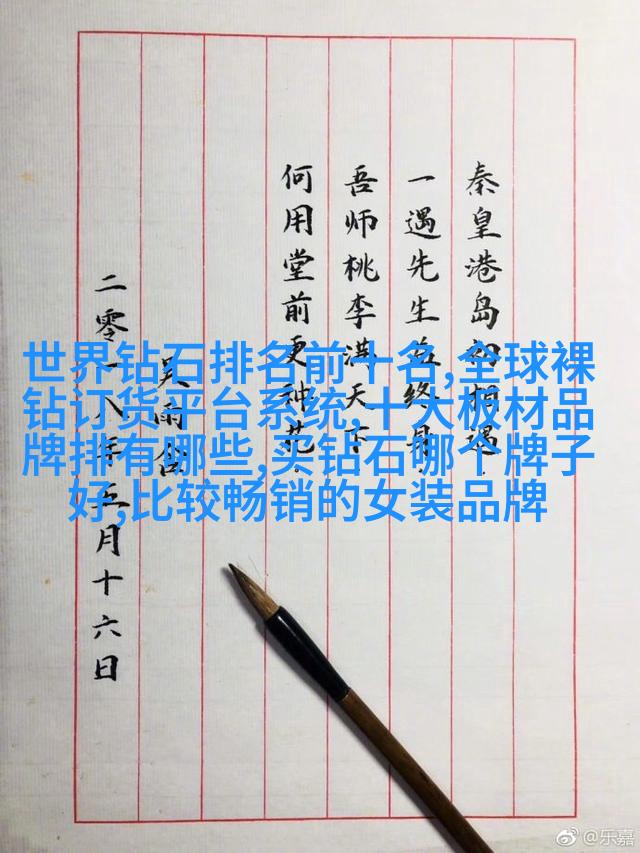 秦皇港岛初相遇
一遇先生终身
吾师桃李满天下
何用堂前更种花
吴雨
二零一八年五月十六日
世界钻石排名前十名,全球裸
钻订货平台系统,十大板材品
牌排有哪些,买钻石哪个牌子
好,比较畅销的女装品牌
@乐嘉